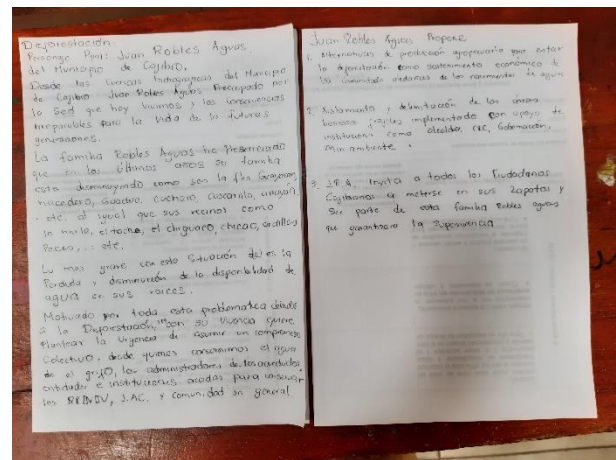 Deforestación.
Personaje Ppal: Juan Robles Aguas.
del Municipio de Cajibio.
Desde las Cuencas hidrograficas del Municipio
de Cajibio Juan Robles Aguas Preocupado por
la Sed que hoy vivimos y las consecuencias
irreparables para la vida de la futuras
generaciones.
La familia Robles Aguas ha Presenciado
que en los últimos años su familia
esta disminuyendo como son la flia, Guayacan,
nacedero, Guadua, cucharo, cascarillo, arrayán,
etc. al igual que sus vecinos como
la mirla, el toche, el chiguaco, chicao, ardillas
Peces, ... etc.
Lo mas grave con esta Situación es la
Perdida y disminución de la disponibilidad de
agua en sus raices.
Motivado por toda esta problematica debido
a la Deforestación, con su vivencia quiere
Plantear la urgencia de asumir un compromiso
Colectivo, desde quienes consumimos el agua
de el grifo, los administradores de los acueductos
entidades e instituciones creadas para conservar
los J.A.C. y comunidad en general
Juan Robles Aguas Propone
1. Alternativas de producción agropecuaria para evitar
la deforestación como sostenimiento económico de
las comunidades aledañas de los nacimientos de agua
2. Aislamiento y delimitación de las áreas
boscosas fragiles implementado con apoyo de
institución como alcaldía, CRC, Gobernación,
Min ambiente.
3. J.R.A. Invita a todos los Ciudadanos
Cajibianos a meterse en sus Zapatos y
Ser parte de esta familia Robles aguas
que garantizara la Supervivencia